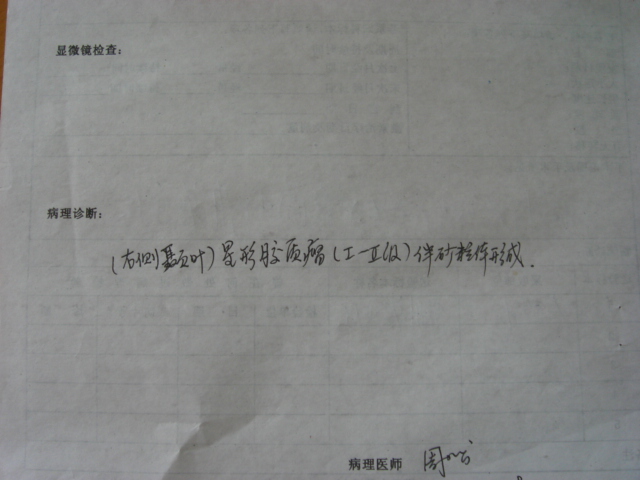 显微镜检查：
病理诊断：
（右侧颞叶）星形胶质瘤（I-II级）伴砂粒体形成.
病理医师 周